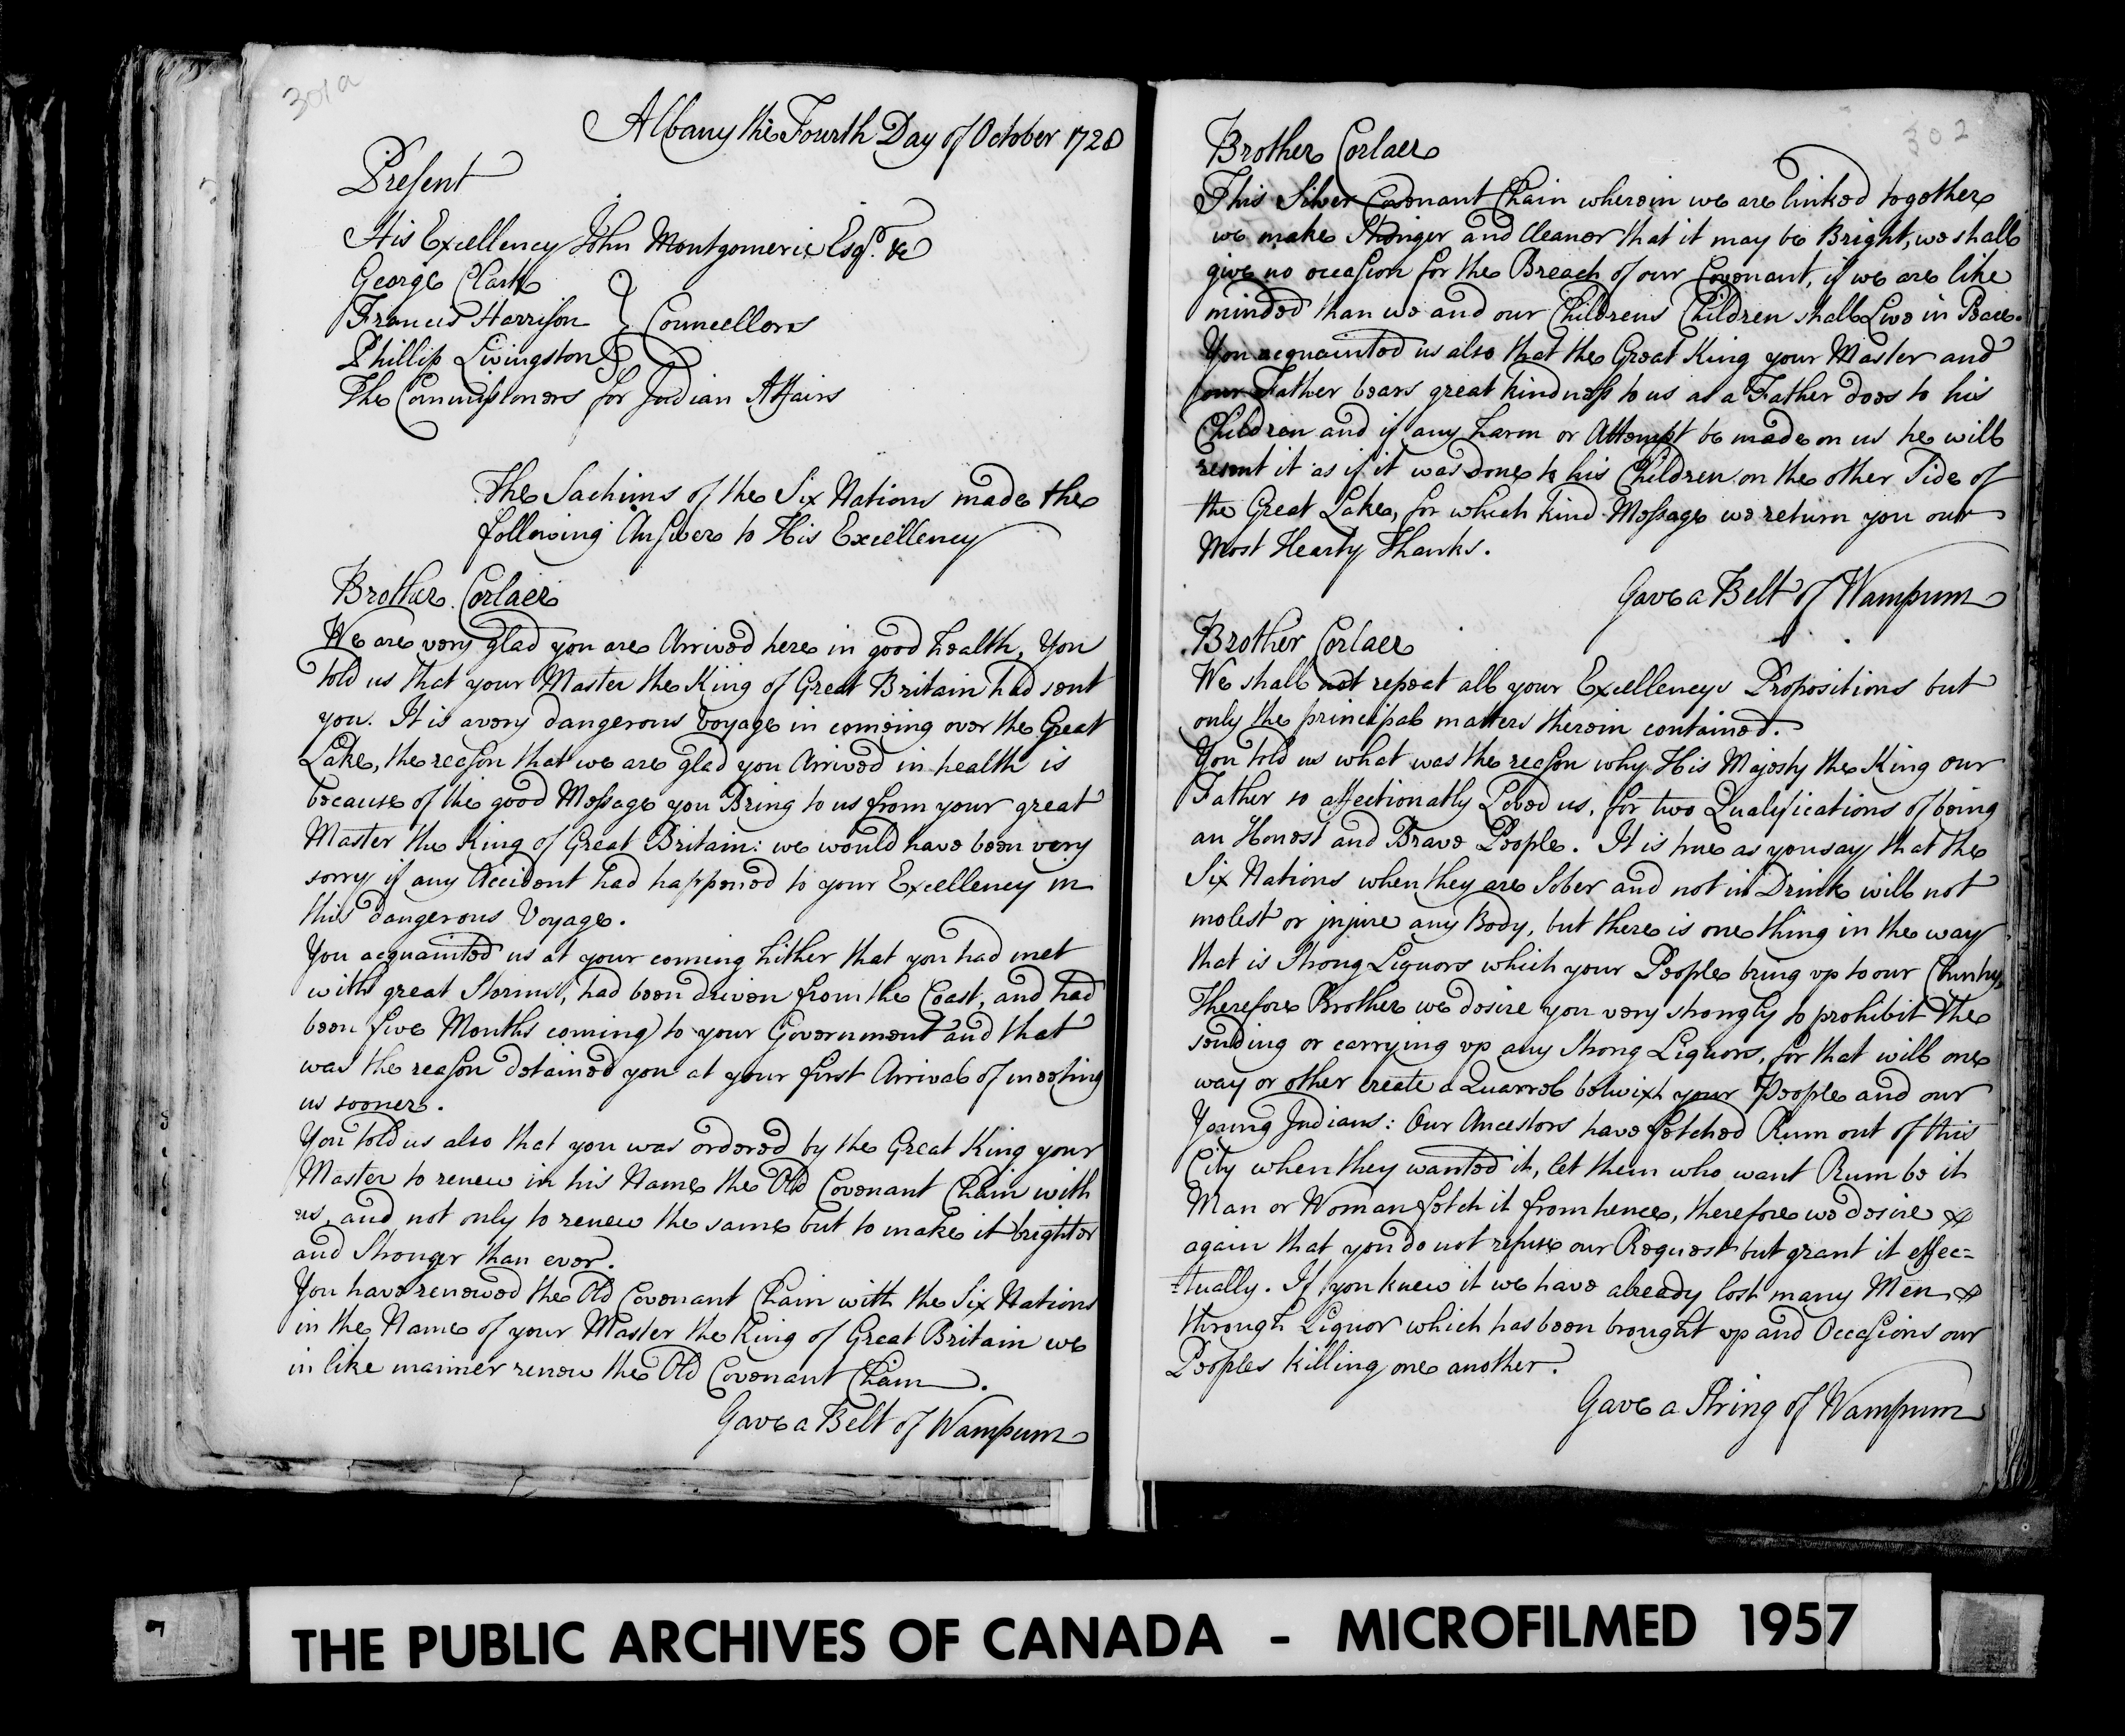 301a
Albany the Fourth Day of October 1728
Present
His Excellency John Montgomerie Esqr. &c
George Clark
Francis Harrison } Councellors
Phillip Livingston
The Commissioners for Indian Affairs
The Sachims of the Six Nations made the
following Answer to His Excellency
Brother Corlaer
We are very glad you are Arrived here in good health, You
told us that your Master the King of Great Britain had sent
you. It is a very dangerous Voyage in comeing over the Great
Lake, the reason that we are glad you Arrived in health is
because of the good Message you Bring to us from your great
Master the King of Great Britain: we would have been very
sorry if any Accident had happened to your Excellency in
this dangerous Voyage.
You acquainted us at your coming hither that you had met
with great Storms, had been driven from the Coast, and had
been five Months coming to your Government and that
was the reason detained you at your first Arrival of meeting
us sooner.
You told us also that you was ordered by the Great King your
Master to renew in his Name the Old Covenant Chain with
us, and not only to renew the same but to make it brighter
and Stronger than ever.
You have renewed the Old Covenant Chain with the Six Nations
in the Name of your Master the King of Great Britain we
in like manner renew the Old Covenant Chain.
Gave a Belt of Wampum
302
Brother Corlaer
This Silver Covenant Chain wherein we are linked together
we make Stronger and Cleaner that it may be Bright, we shall
give no occasion for the Breach of our Covenant, if we are like
minded than we and our Childrens Children shall Live in Peace.
You acquainted us also that the Great King your Master and
our Father bears great kindness to us as a Father does to his
Children and if any harm or Attempt be made on us he will
resent it as if it was done to his Children on the other Side of
the Great Lake, for which kind Message we return you our
Most Hearty Thanks.
Gave a Belt of Wampum
Brother Corlaer
We shall not repeat all your Excellencys Propositions but
only the principal matters therein contained.
You told us what was the reason why His Majesty the King our
Father so affectionatly Loved us, for two Qualifications of being
an Honest and Brave People. It is true as you say that the
Six Nations when they are Sober and not in Drink will not
molest or injure any Body, but there is one thing in the way
that is Strong Liquors which your People bring up to our Cuntry,
Therefore Brother we desire you very strongly to prohibit the
sending or carrying up any Strong Liquors, for that will one
way or other create a Quarrel betwixt your People and our
Young Indians: Our Ancestors have fetched Rum out of this
City when they wanted it, let them who want Rum be it
Man or Woman fetch it from hence, therefore we desire
again that you do not refuse our Request but grant it effec=
=tually. If you knew it we have already lost many Men
through Liquor which has been brought up and Occasions our
Peoples killing one another.
Gave a String of Wampum
THE PUBLIC ARCHIVES OF CANADA - MICROFILMED 1957